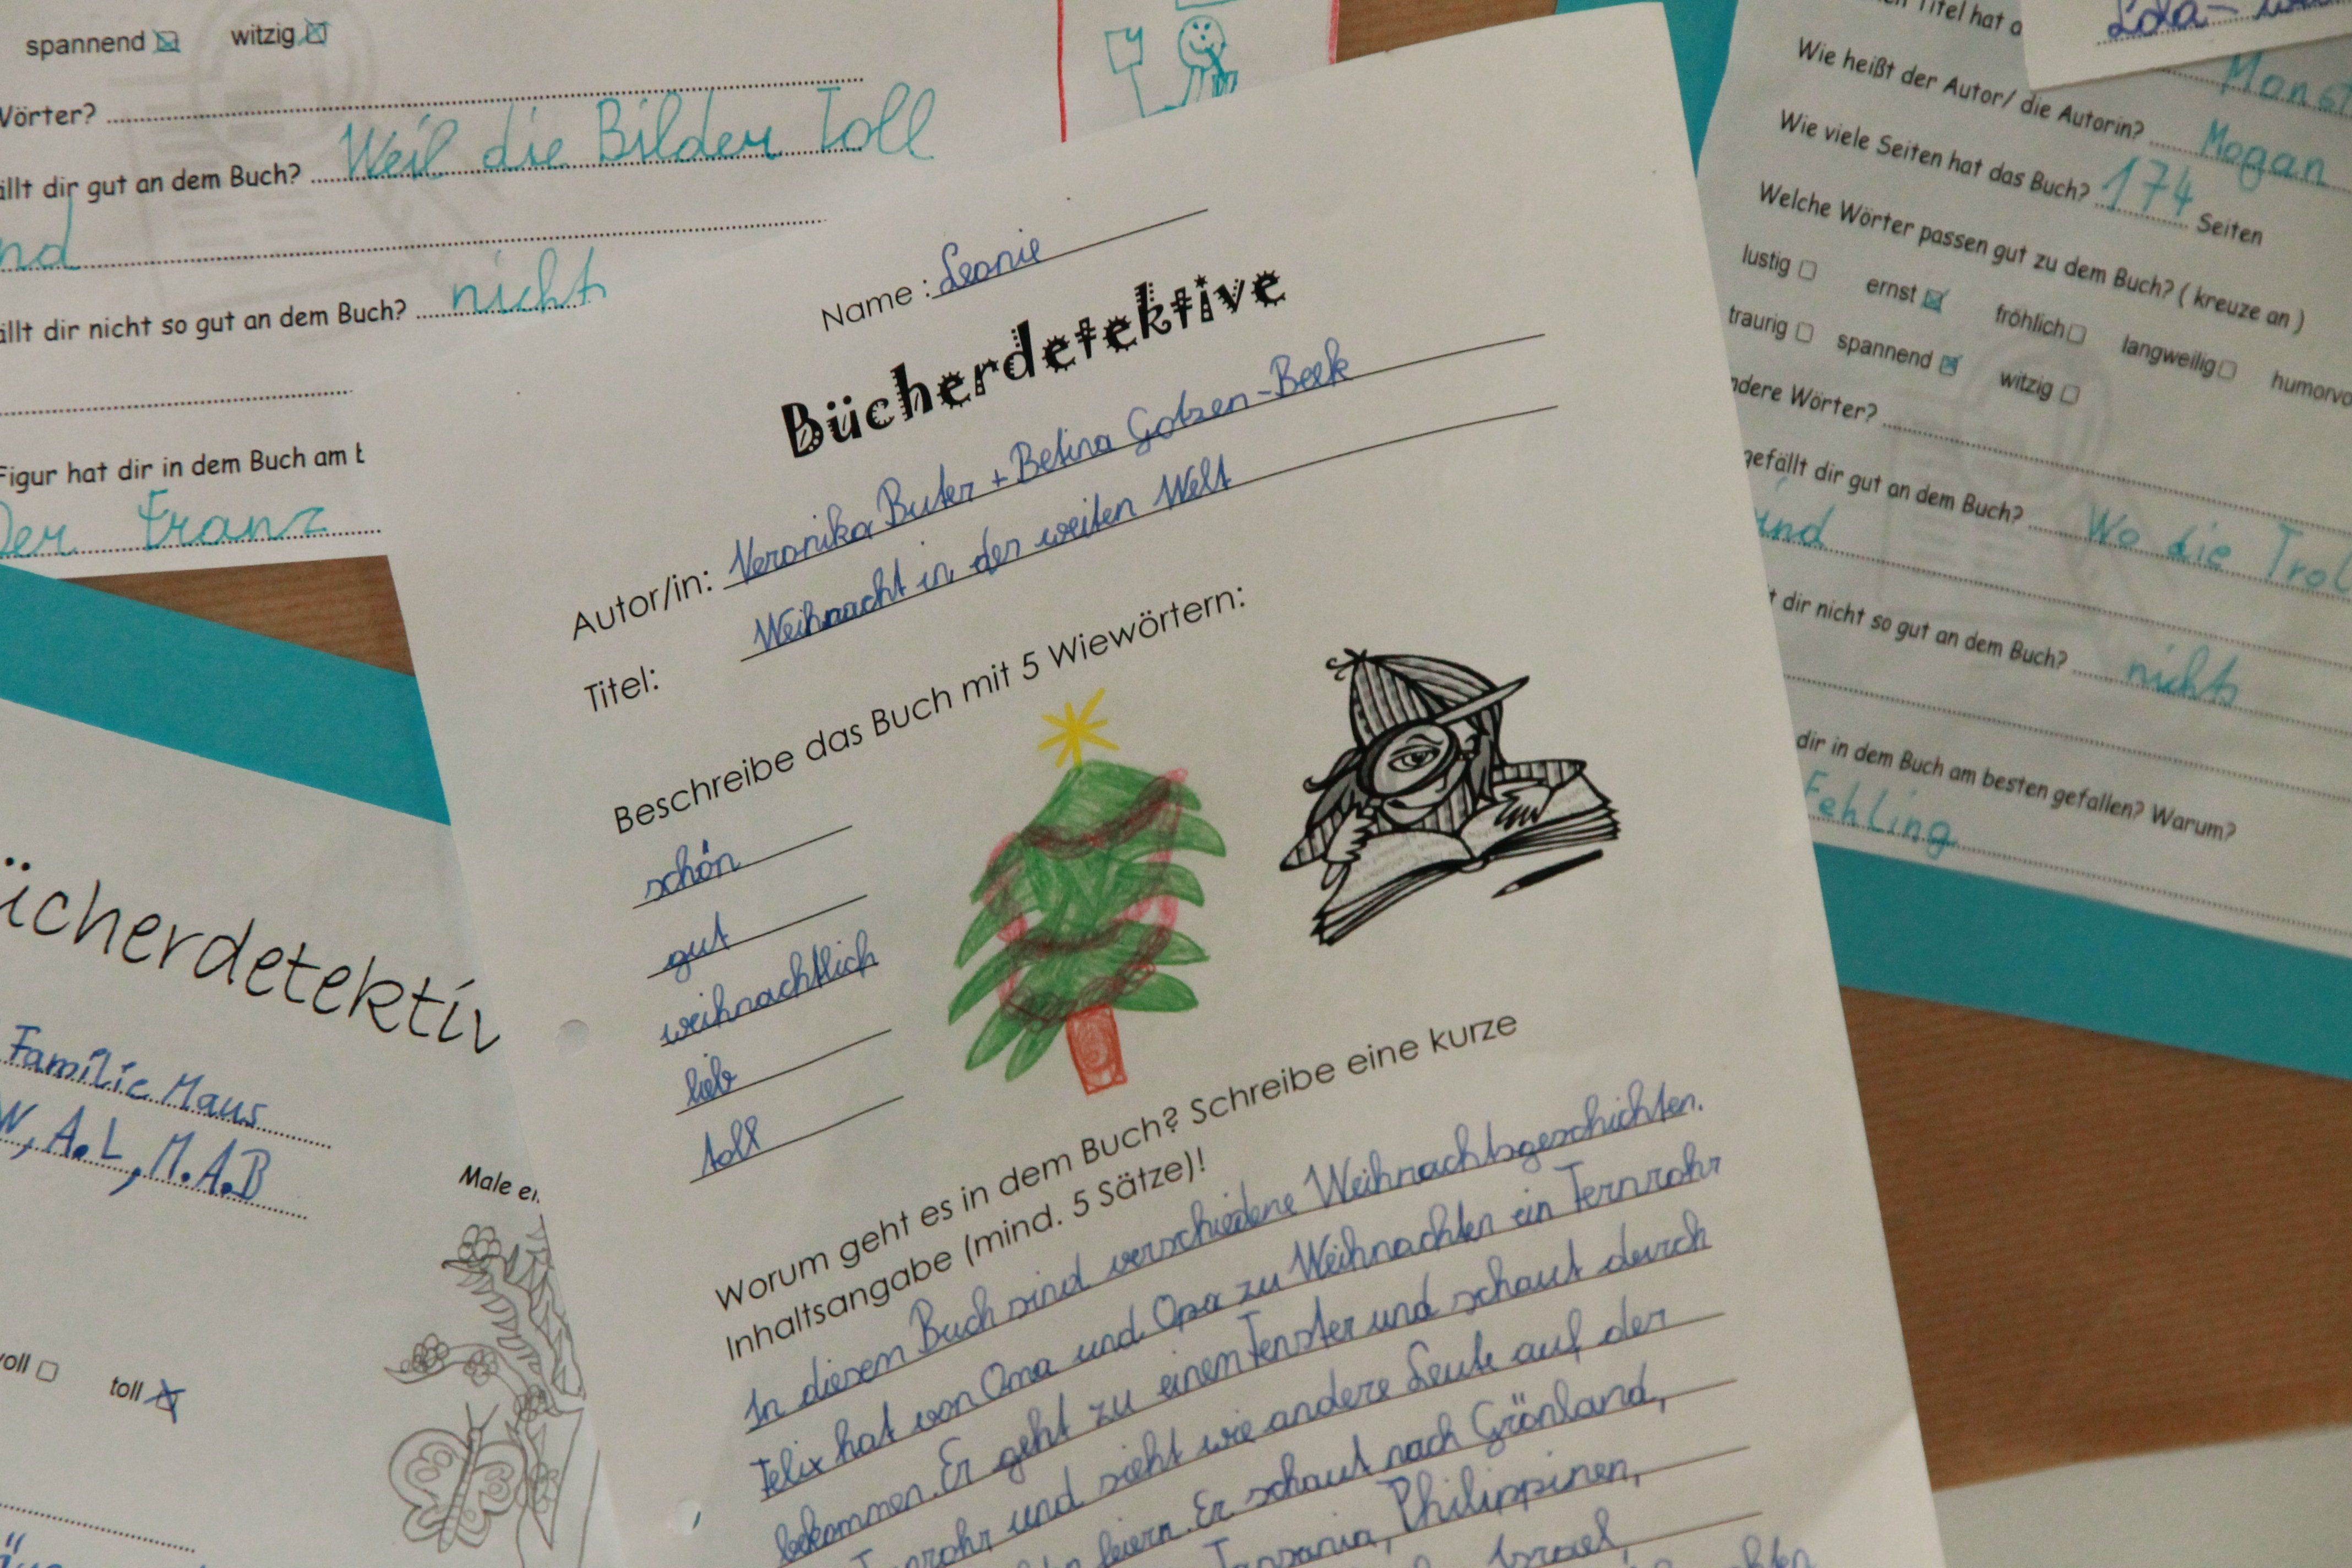 spannend witzig
Wörter?
ällt dir gut an dem Buch? Weil die Bilder Toll
nd
ällt dir nicht so gut an dem Buch? nichts
Figur hat dir in dem Buch am b
Der Franz
Name: Leonie
Bücherdetektive
Autor/in: Veronika Buter + Betina Gotzen-Beek
Titel: Weihnacht in der weiten Welt
Beschreibe das Buch mit 5 Wiewörtern:
schön
gut
weihnachtlich
lieb
toll
Worum geht es in dem Buch? Schreibe eine kurze
Inhaltsangabe (mind. 5 Sätze)!
In diesem Buch sind verschiedene Weihnachtsgeschichten.
Felix hat von Oma und Opa zu Weihnachten ein Fernrohr
bekommen. Er geht zu einem Fenster und schaut durch
und sieht wie andere Leute auf der
feiern. Er schaut nach Grönland,
Tansania, Philippinen,
Israel,
Titel hat
Wie heißt der Autor/ die Autorin? Mogan
Wie viele Seiten hat das Buch? 174 Seiten
Welche Wörter passen gut zu dem Buch? ( kreuze an )
lustig ernst fröhlich langweilig humorvo
traurig spannend witzig
ndere Wörter?
gefällt dir gut an dem Buch? Wo die Trol
ind
t dir nicht so gut an dem Buch? nichts
dir in dem Buch am besten gefallen? Warum?
Fehling
ücherdetektiv
Familie Maus
W, A.L, M.A.B
Male ei
oll toll